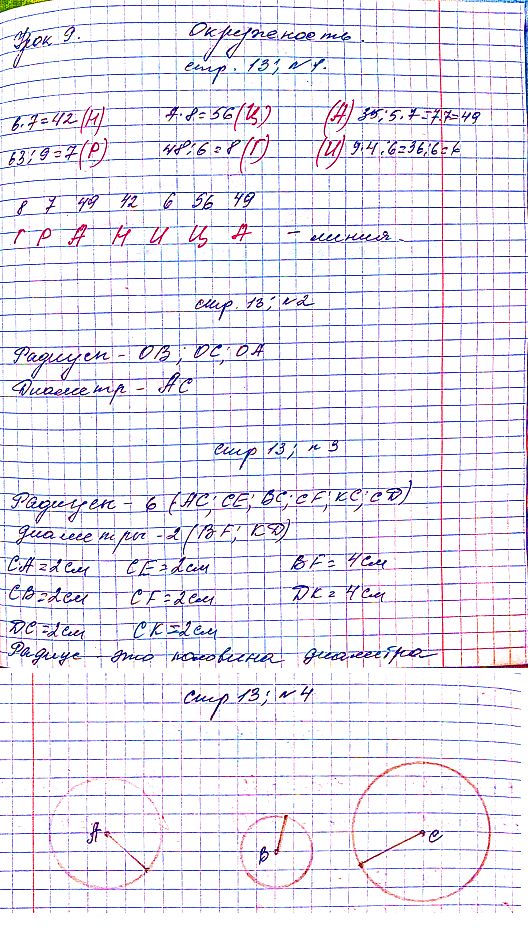 Урок 9. Окружность.
стр. 13; №1.
6·7=42(Н) 7·8=56(Ц) (А) 35:5·7=7·7=49
63:9=7(Р) 48:6=8(Г) (И) 9·4:6=36:6=6
8 7 49 42 6 56 49
Г Р А Н И Ц А - линия.
стр. 13; №2
Радиусы - ОВ; ОС; ОА
Диаметр - АС
стр 13; №3
Радиусы - 6 (АС; СЕ; ВС; СF; КС; СD)
диаметры - 2 (BF; KD)
СА=2см СЕ=2см BF=4см
СВ=2см СF=2см DK=4см
DC=2см СК=2см
Радиус - это половина диаметра
стр 13; №4
А В С